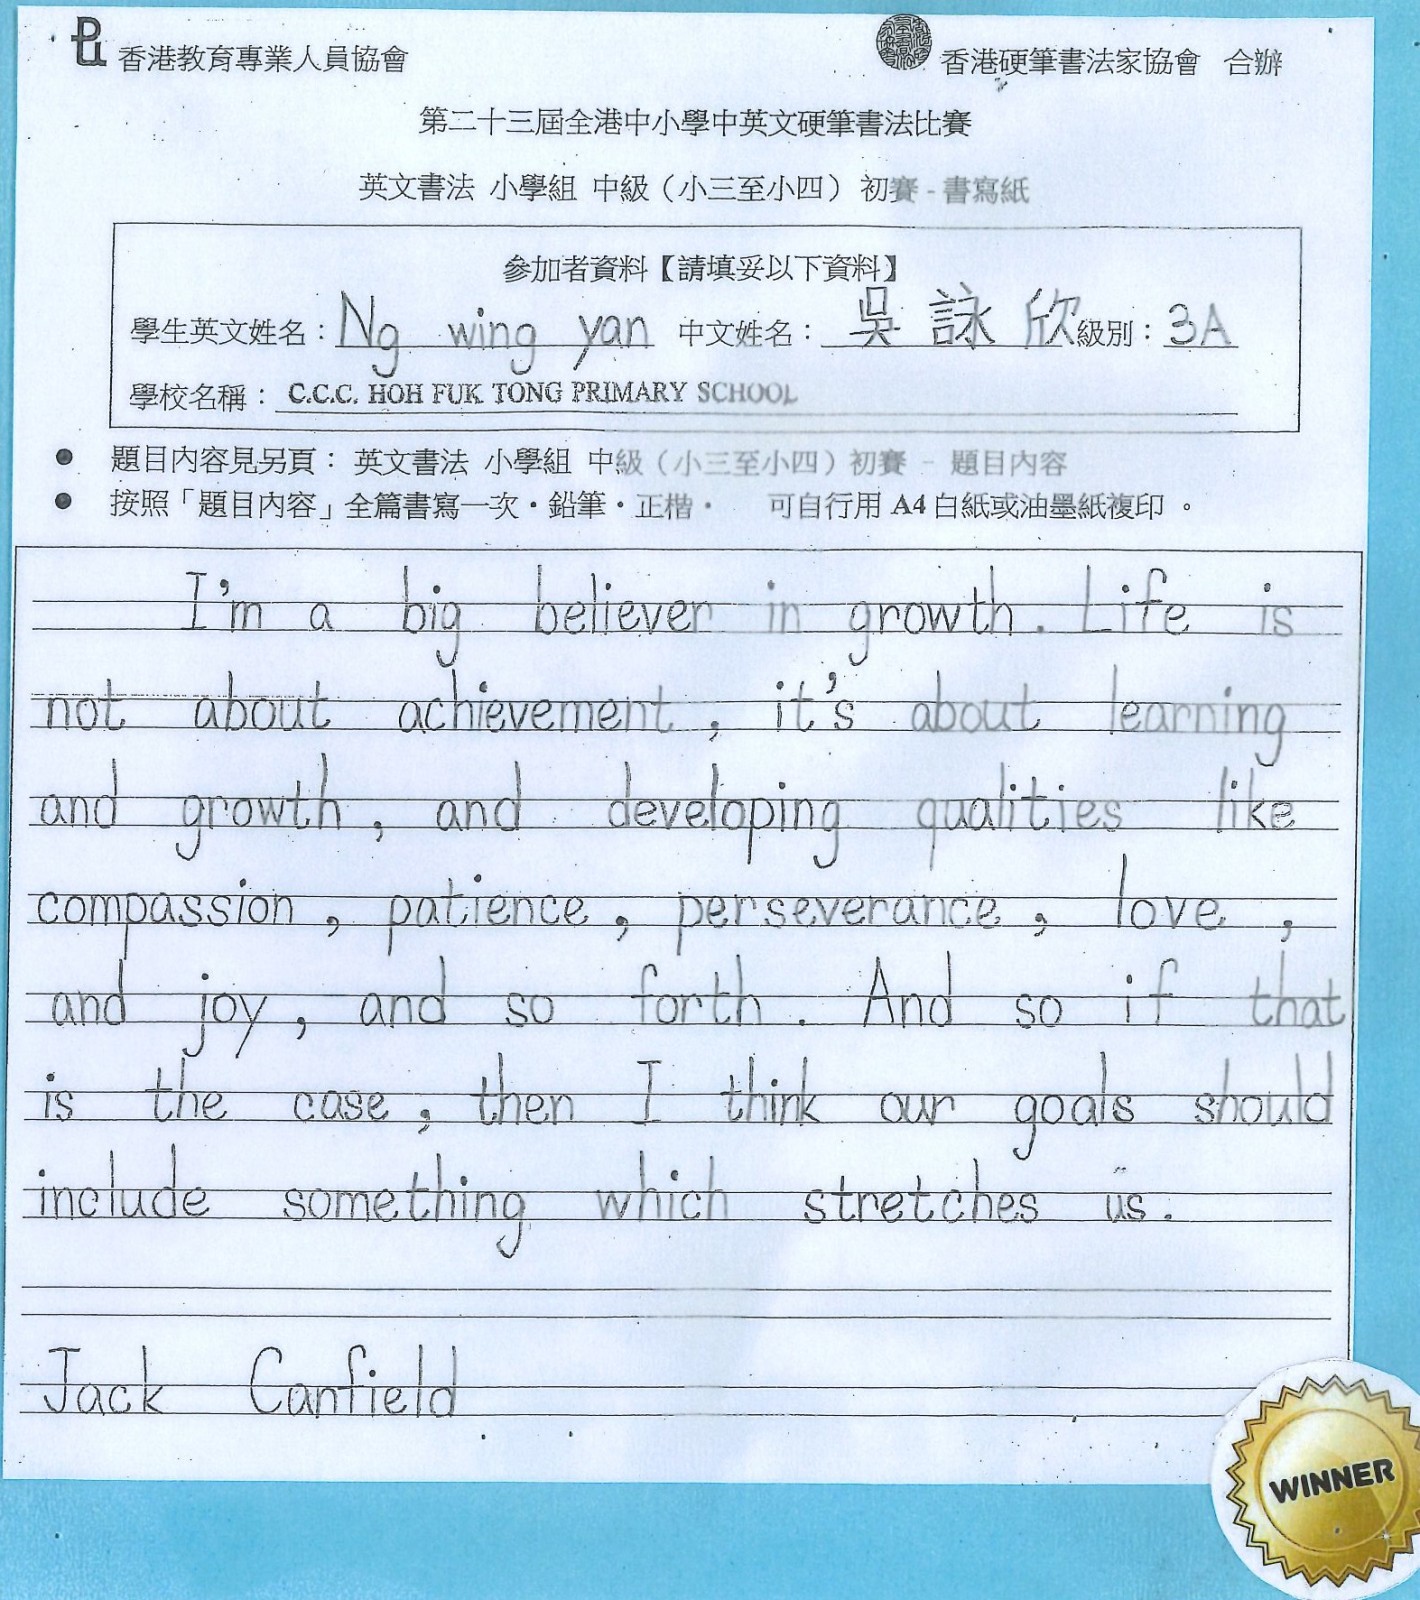 香港教育專業人員協會 香港硬筆書法家協會 合辦
第二十三屆全港中小學中英文硬筆書法比賽
英文書法 小學組 中級（小三至小四）初賽 - 書寫紙
參加者資料【請填妥以下資料】
學生英文姓名：Ng wing yan 中文姓名：吳詠欣 級別：3A
學校名稱：C.C.C. HOH FUK TONG PRIMARY SCHOOL
● 題目內容見另頁：英文書法 小學組 中級（小三至小四）初賽 - 題目內容
● 按照「題目內容」全篇書寫一次‧鉛筆‧正楷‧ 可自行用 A4 白紙或油墨紙複印。
I'm a big believer in growth. Life is
not about achievement, it's about learning
and growth, and developing qualities like
compassion, patience, perseverance, love,
and joy, and so forth. And so if that
is the case, then I think our goals should
include something which stretches us.
Jack Canfield
WINNER